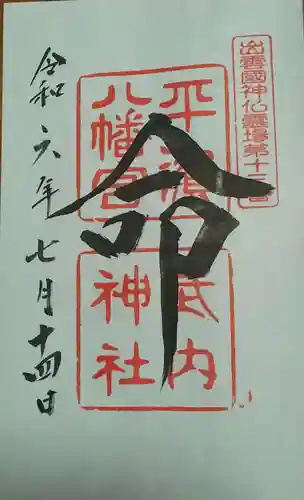 出雲國神仏霊場第十二番
平濱
八幡宮
武内
神社
命
令和六年七月十四日